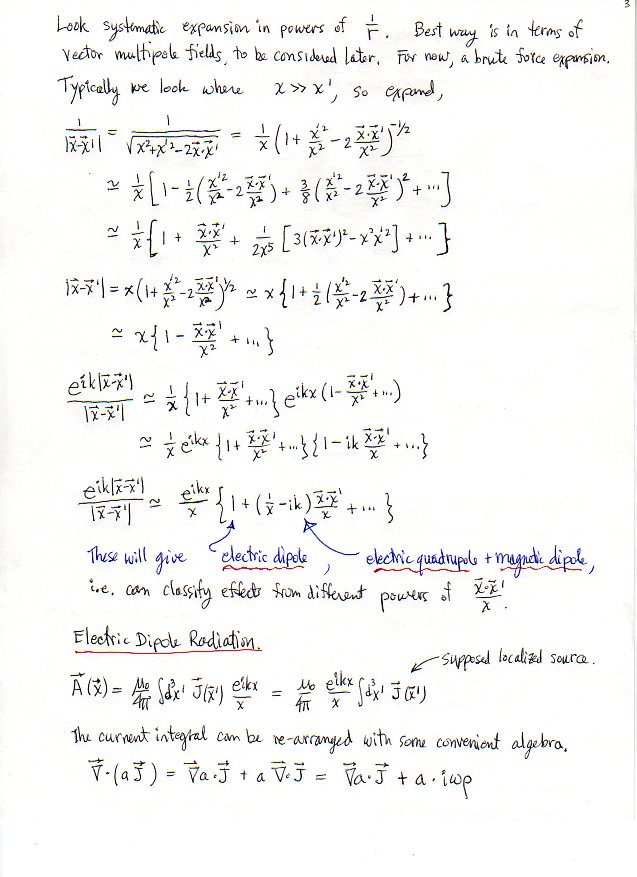 3
Look systematic expansion in powers of 1/r. Best way is in terms of
vector multipole fields, to be considered later. For now, a brute force expansion.
Typically we look where x >> x', so expand,
1/|x⃗-x⃗'| = 1/√(x²+x'²-2x⃗·x⃗') = 1/x (1 + x'²/x² - 2 x⃗·x⃗'/x²)^(-1/2)
≃ 1/x [1 - 1/2 (x'²/x² - 2 x⃗·x⃗'/x²) + 3/8 (x'²/x² - 2 x⃗·x⃗'/x²)² + ...]
≃ 1/x {1 + x⃗·x⃗'/x² + 1/2x⁵ [3(x⃗·x⃗')² - x²x'²] + ...}
|x⃗-x⃗'| = x(1 + x'²/x² - 2 x⃗·x⃗'/x²)^(1/2) ≃ x {1 + 1/2 (x'²/x² - 2 x⃗·x⃗'/x²) + ...}
≃ x {1 - x⃗·x⃗'/x² + ...}
e^(ik|x⃗-x⃗'|)/|x⃗-x⃗'| ≃ 1/x {1 + x⃗·x⃗'/x² + ...} e^(ikx(1 - x⃗·x⃗'/x² + ...))
≃ 1/x e^(ikx) {1 + x⃗·x⃗'/x² + ...}{1 - ik x⃗·x⃗'/x + ...}
e^(ik|x⃗-x⃗'|)/|x⃗-x⃗'| ≃ e^(ikx)/x {1 + (1/x - ik) x⃗·x⃗'/x + ...}
These will give electric dipole, electric quadrupole + magnetic dipole,
i.e. can classify effects from different powers of x⃗·x⃗'/x.
Electric Dipole Radiation.
supposed localized source.
A⃗(x⃗) = μ₀/4π ∫d³x' J⃗(x⃗') e^(ikx)/x = μ₀/4π e^(ikx)/x ∫d³x' J⃗(x⃗')
The current integral can be re-arranged with some convenient algebra.
∇⃗·(aJ⃗) = ∇⃗a·J⃗ + a∇⃗·J⃗ = ∇⃗a·J⃗ + a·iωρ